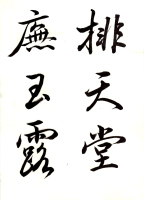 排天堂
廉玉露